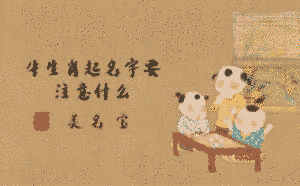 牛生肖起名字要
注意什么
美名宝